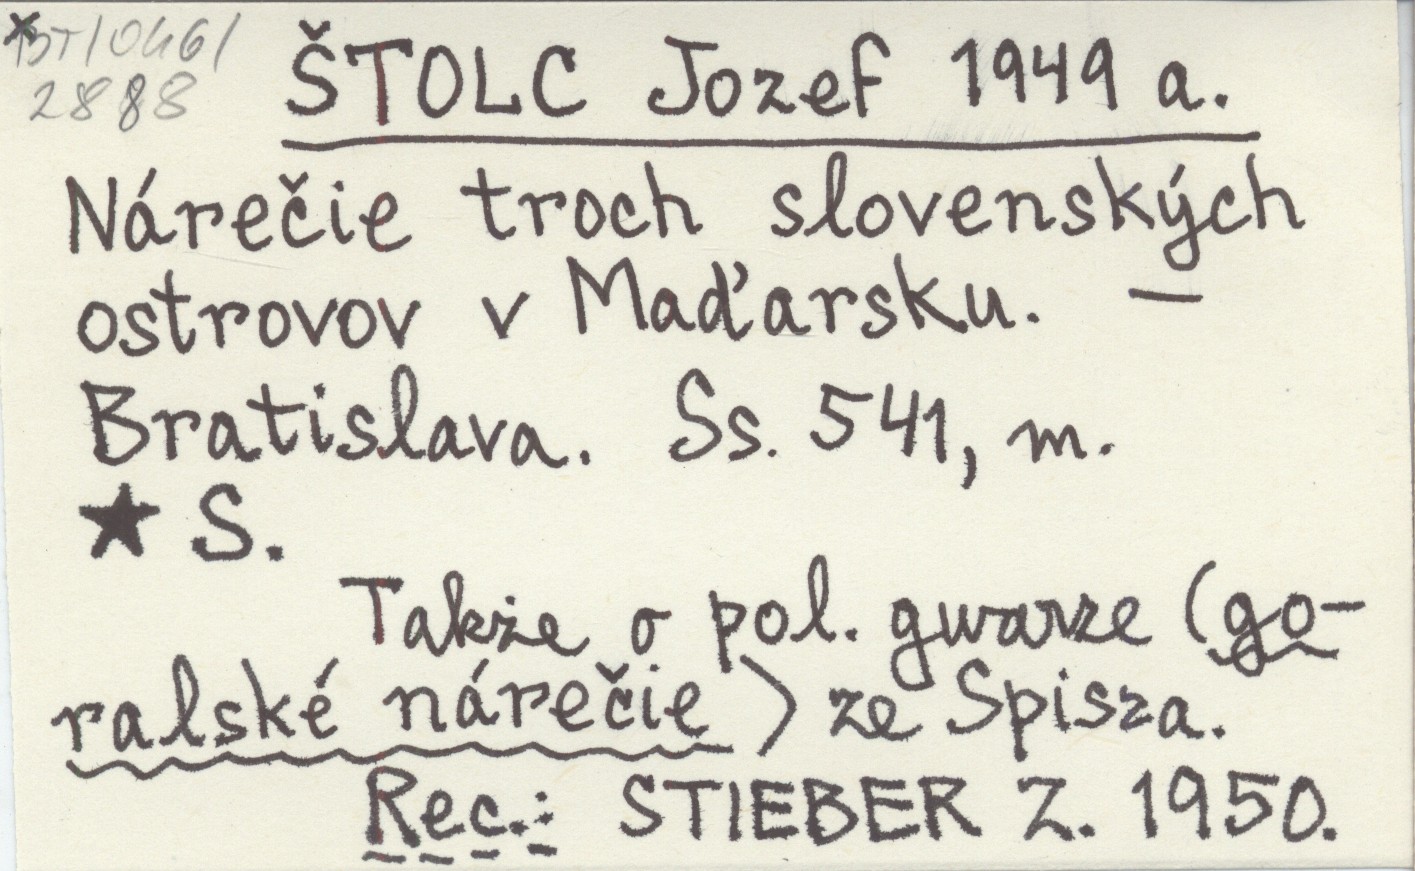 BT/046/
2888
ŠTOLC Jozef 1949 a.
Nárečie troch slovenských
ostrovov v Maďarsku. —
Bratislava. Ss. 541, m.
★ S.
Także o pol. gwarze (go-
ralské nárečie) ze Spisza.
Rec.: STIEBER Z. 1950.